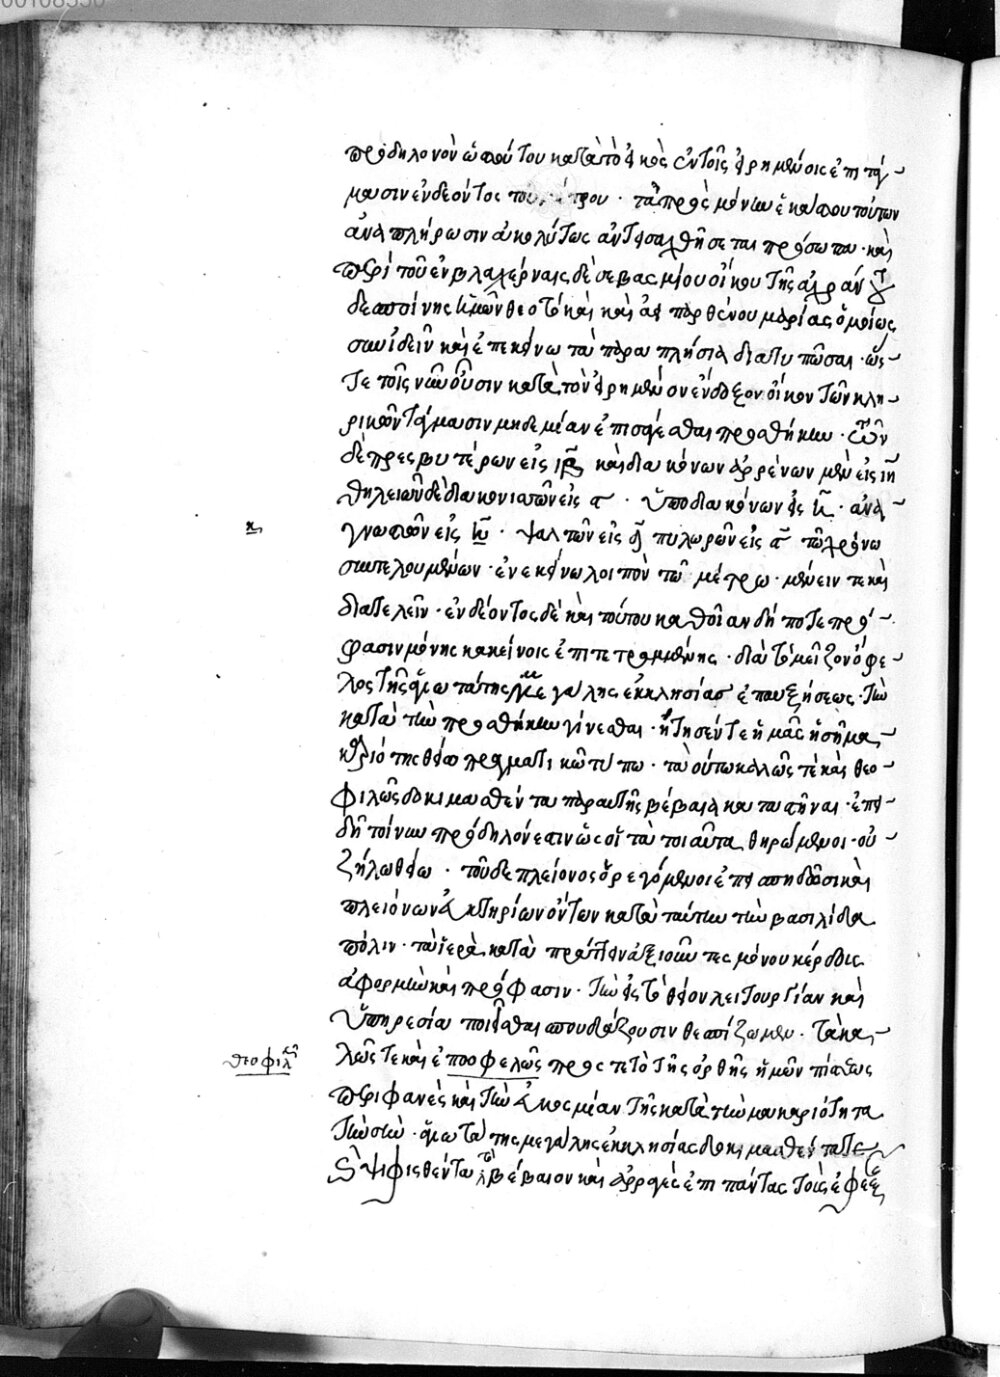 πρόδηλον ὂν ὡς τούτου κατὰ τὸ εἰκὸς ἐν τοῖς εἰρημένοις ἐπὶ τάγ-
μασιν ἐνδεόντος τοῦ μέτρου · τὰ πρὸς μόνην ἑκάστου τούτων
ἀναπλήρωσιν ἀκολύτως ἀντεισαχθήσεται πρόσωπα · καὶ
περὶ τοῦ ἐν βλαχέρναις δὲ σεβασμίου οἴκου τῆς ἀχράντου
δεσποίνης ἡμῶν θεοτόκου καὶ ἀειπαρθένου μαρίας ὁμοίως
συνίδειν καὶ ἐπ' ἐκείνω τὰ παραπλήσια διατυπῶσαι · ὥσ-
τε τοῖς νῦν οὖσιν κατὰ τὸν εἰρημένον ἔνδοξον οἶκον τῶν κλη-
ρικῶν τάγμασιν μηδεμίαν ἐπισάγεσθαι προσθήκην · τῶν
δὲ πρεσβυτέρων εἰς ιβ καὶ διακόνων ἀρρένων μὲν εἰς ιη
θηλειῶν δὲ διακονισσῶν εἰς ς · ὑποδιακόνων εἰς κ · ἀνα-
γνωστῶν εἰς κ · ψαλτῶν εἰς δ πυλωρῶν εἰς ς τῶ χρόνω
συντελουμένων · ἐν ἐκείνω λοιπὸν τῶ μέτρω · μένειν τε καὶ
διατελεῖν · ἐνδέοντος δὲ καὶ τούτου καθ' οἵαν δήποτε πρό-
φασιν μόνης κακείνοις ἐπιτετραμμένης · διὰ τὸ μεῖζον ὄφε-
λος τῆς ἁγιωτάτης μεγάλης ἐκκλησίας ἐπαυξήσεως · τὴν
κατὰ τὴν προσθήκην γίνεσθαι · ἤτησέν τε ἡμᾶς ἡ σὴ μα-
καριότης θείω πραγματικῶ τύπω · τὰ οὕτω καλῶς τε καὶ θεο-
φιλῶς δοκιμασθέντα παρ' αὐτῆς βέβαια καταστῆναι · ἐπει-
δὴ τοίνυν πρόδηλόν ἐστιν ὡς οἱ τὰ τοιαῦτα θηρώμενοι · οὐ
ζήλω θείω · τοῦ δὲ πλείονος ὀρεγόμενοι ἐπεισπηδῶσι καὶ
πλειόνων εὐκτηρίων ὄντων κατὰ ταύτην τὴν βασιλίδα
πόλιν · τὰ ἱερὰ κατὰ πράττειν ἀξιοῦντες μόνου κέρδους
ἀφορμὴν καὶ πρόφασιν · τὴν εἰς τὸ θεῖον λειτουργίαν καὶ
ὑπηρεσίαν ποιεῖσθαι σπουδάζουσιν θεσπίζομεν · τὰ κα-
λῶς τε καὶ ἐπωφελῶς πρός τε τὸ τῆς ὀρθῆς ἡμῶν πίστεως
περιφανὲς καὶ τὴν εὐκοσμίαν τῆς κατὰ τὴν μακαριότητα
τὴν σὴν · ἁγιωτάτης μεγάλης ἐκκλησίας δοκιμασθέντα τε
καὶ ψηφισθέντα τὸ βέβαιον καὶ ἀρραγὲς ἐπὶ πάντας τοὺς ἐφεξῆς
κ
θεοφιλῶς